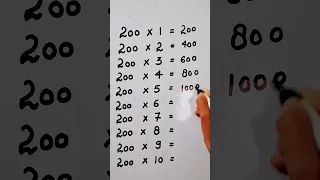 200 × 1 = 200
200 × 2 = 400
200 × 3 = 600
200 × 4 = 800
200 × 5 = 1000
200 × 6 =
200 × 7 =
200 × 8 =
200 × 9 =
200 × 10 =
800
1000